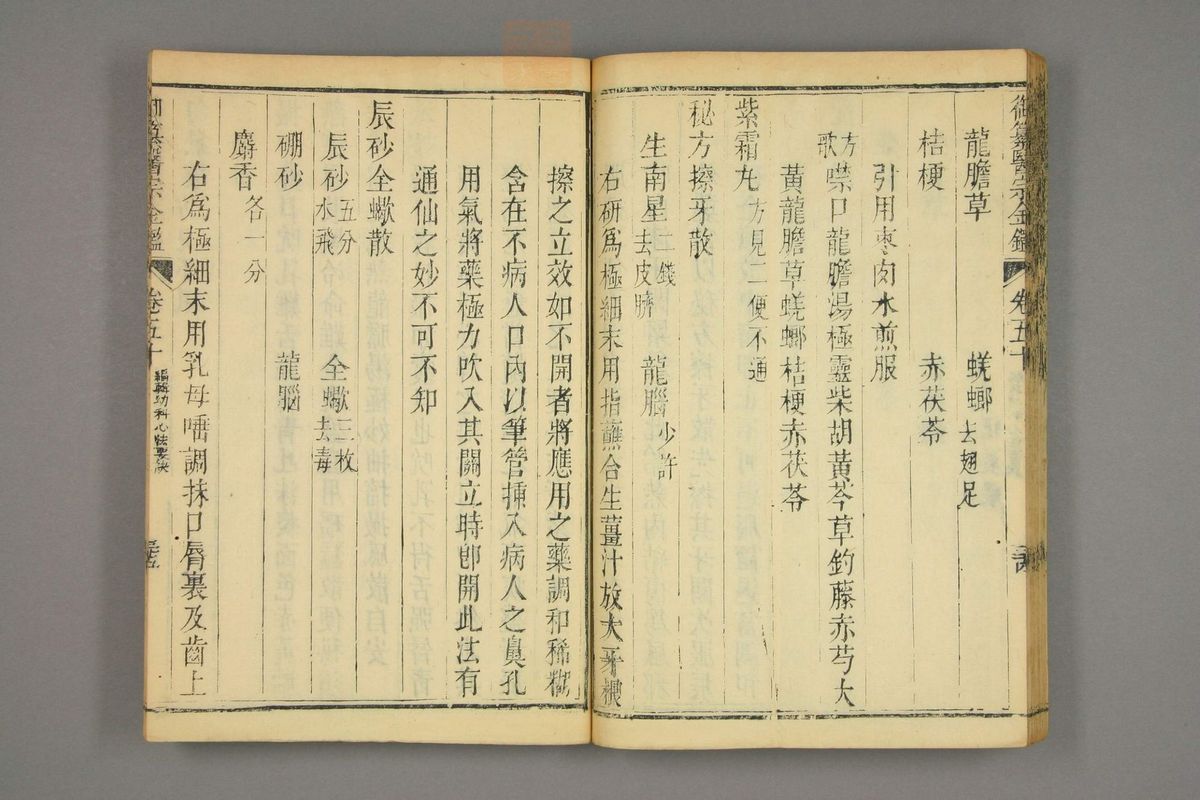 御纂醫宗金鑑 卷五十
龍膽草 蜣螂去翅足
桔梗 赤茯苓
引用棗肉水煎服
方歌 噤口龍膽湯極靈柴胡黃芩草釣藤赤芍大
黃龍膽草蜣螂桔梗赤茯苓
紫霜丸 方見二便不通
秘方擦牙散
生南星一錢去皮臍 龍腦少許
右研為極細末用指蘸合生薑汁放大牙根
擦之立效如不開者將應用之藥調和稀糊
含在不病人口內以筆管插入病人之鼻孔
用氣將藥極力吹入其關立時卽開此法有
通仙之妙不可不知
辰砂全蠍散
辰砂五分水飛 全蠍三枚去毒
硼砂 龍腦
麝香各一分
右為極細末用乳母唾調抹口脣裏及齒上
御纂醫宗金鑑 卷五十 編輯幼科心法要訣